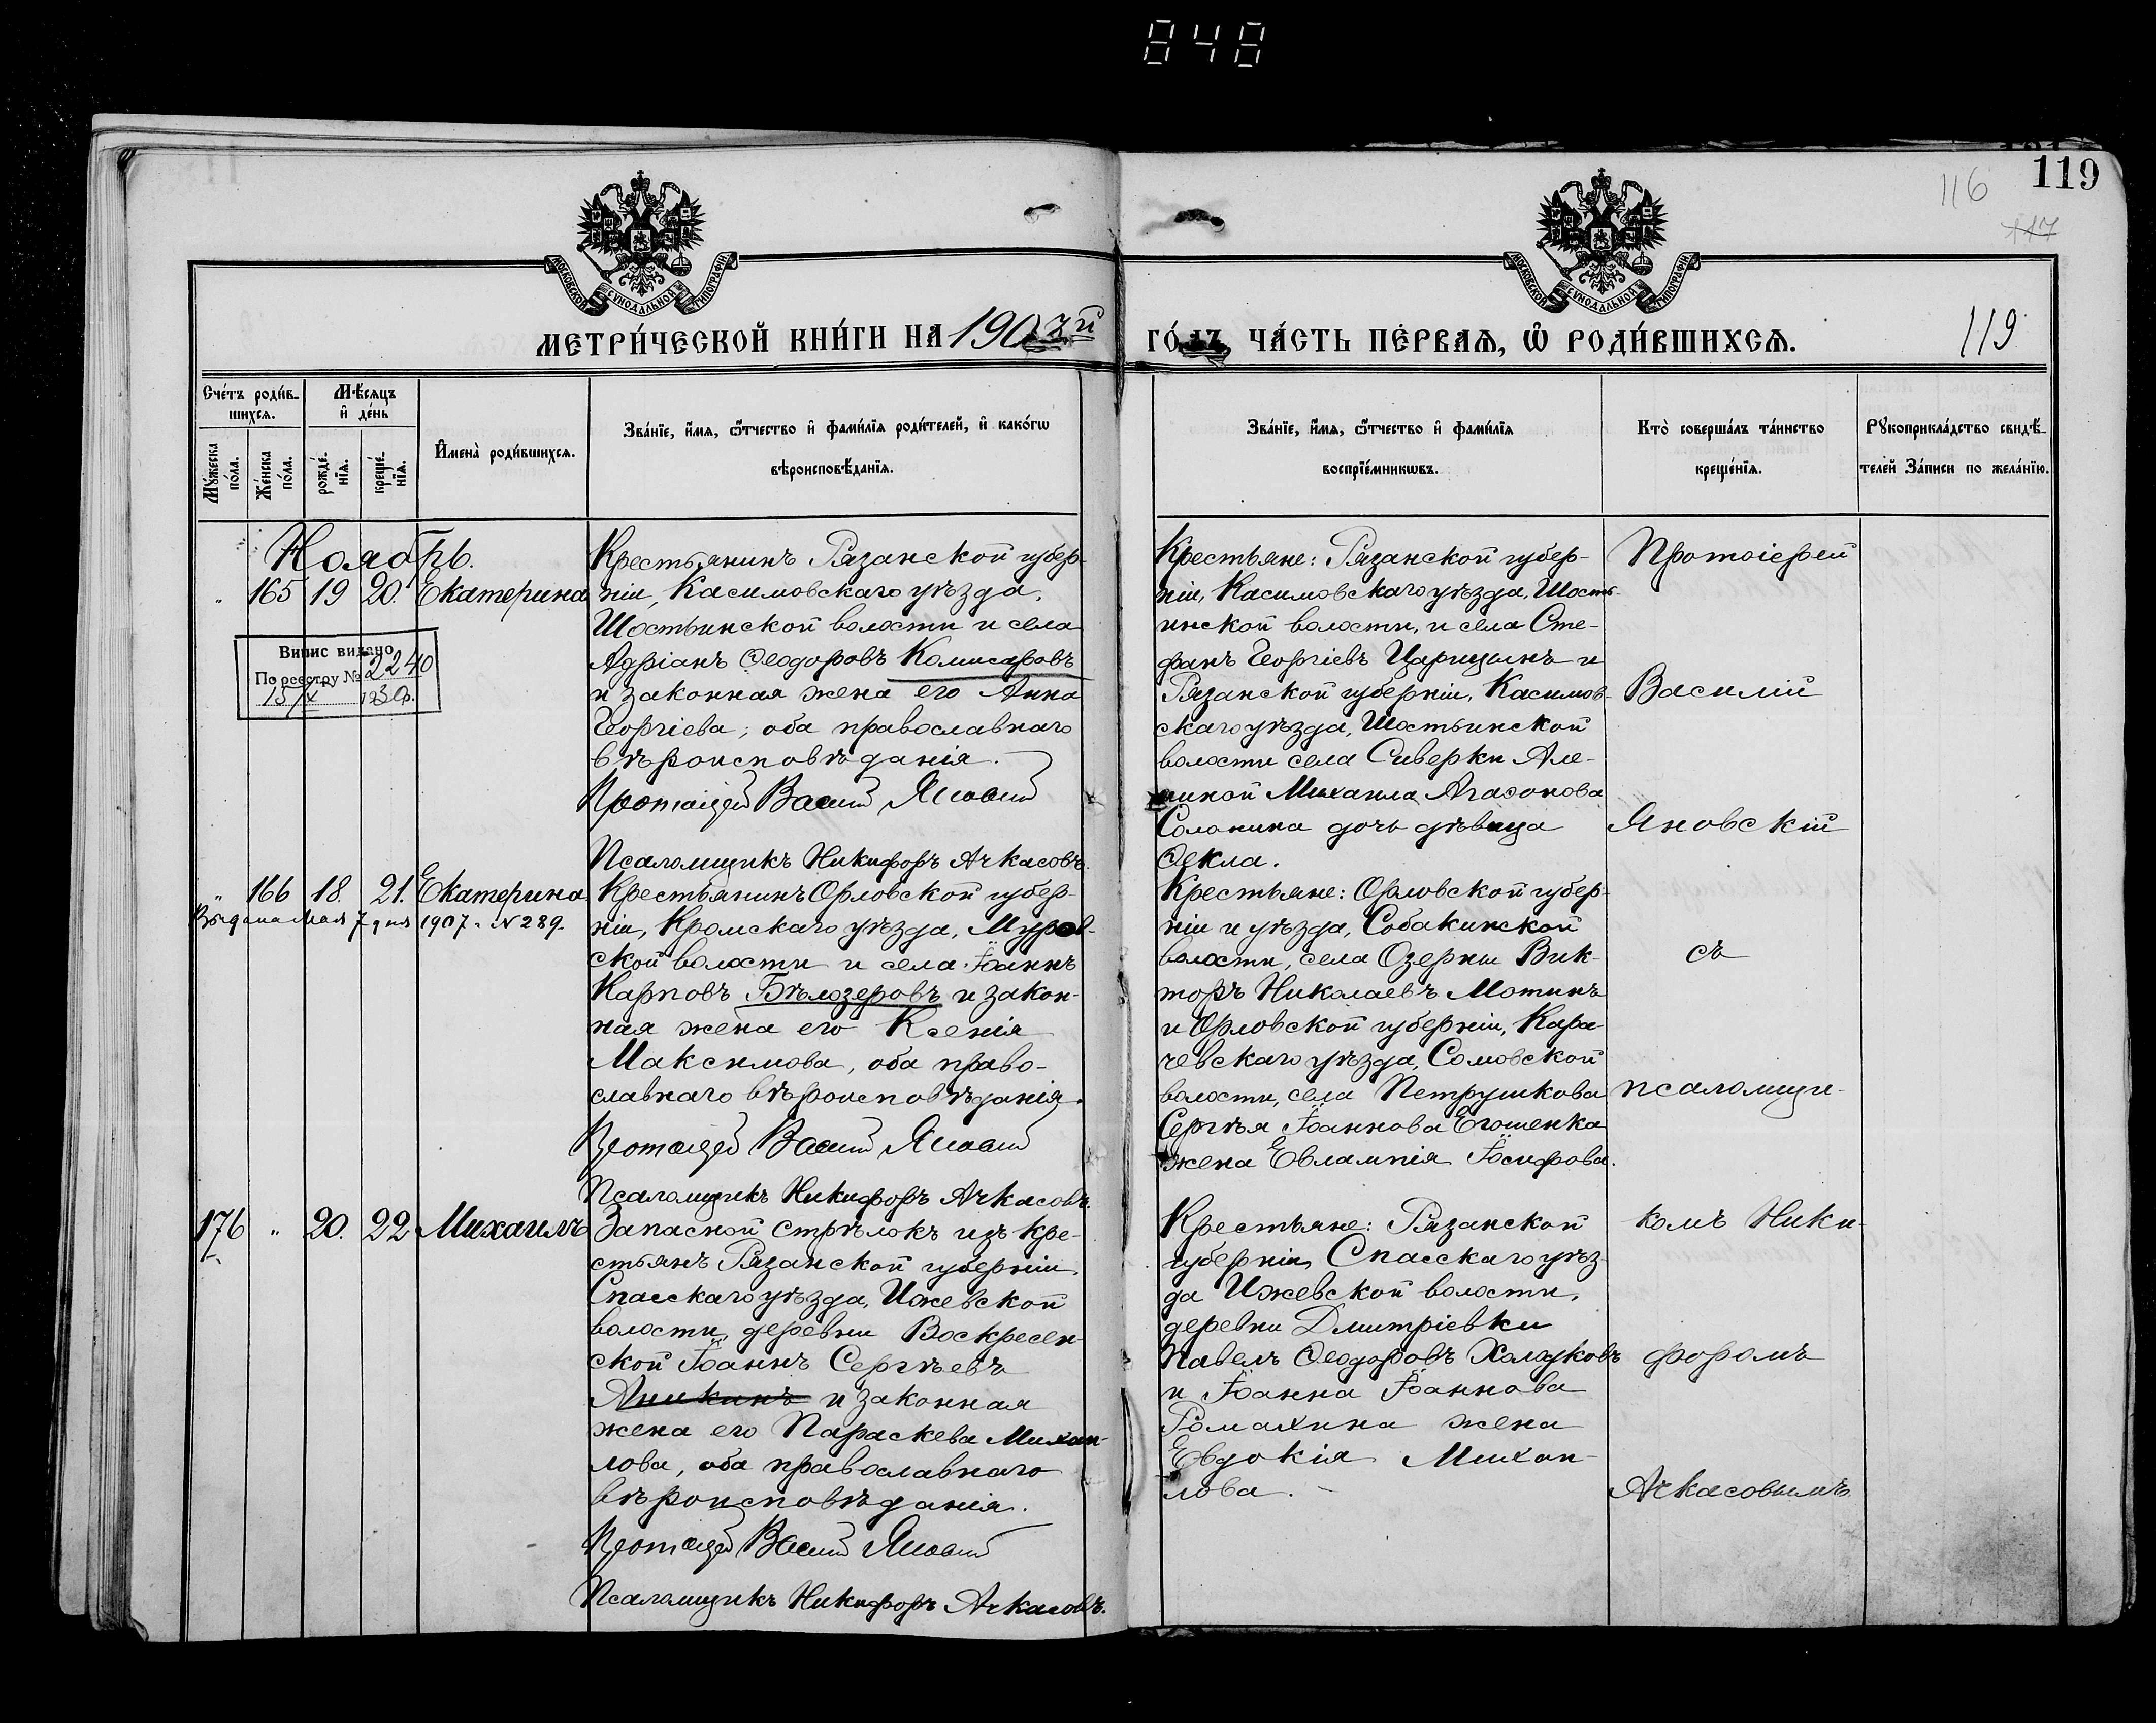 848
119
116
117
МОСКОВСКОЙ СѴНОДАЛЬНОЙ ТИПОГРАФІИ
МОСКОВСКОЙ СѴНОДАЛЬНОЙ ТИПОГРАФІИ
МЕТРИ́ЧЕСКОЙ КНИ́ГИ НА 190
ГО́ ЧА́СТЬ ПЕ́РВАѦ, Ѡ РОДИ́ВШИХСѦ.
119
Сче́тъ роди́в-
шихсѧ.
Мѣ́сѧцъ
и҆ де́нь
Мꙋ́жеска
по́ла.
Же́нска
по́ла.
рожде́-
нїѧ.
креще́-
нїѧ.
И҆мена̀ роди́вшихсѧ.
Зва́нїе, и҆́мѧ, ѻ҆́тчество и҆ фами́лїѧ роди́телей, и҆ како́гѡ
вѣроисповѣ́данїѧ.
Зва́нїе, и҆́мѧ, ѻ҆́тчество и҆ фами́лїѧ
воспрїе́мникѡвъ.
Кто̀ соверша́лъ та́инство
креще́нїѧ.
Рꙋкоприкла́дство свидѣ́-
телей За́писи по жела́нїю.
Ноябрь.
" 165 19 20. Екатерина
Крестьянинъ Рязанской губер-
ніи, Касимовскаго уѣзда,
Шостьинской волости и села
Адріанъ Ѳеодоровъ Комисаровъ
и законная жена его Анна
Георгіева; оба православнаго
вѣроисповѣданія.
Протоіерей Василій Яновскій
Псаломщикъ Никифоръ Ачкасовъ.
Випис видано
По реєстру № 2240
15/X 1930р.
Крестьяне: Рязанской губер-
ніи, Касимовскаго уѣзда, Шость-
инской волости, и села Сте-
фанъ Георгіевъ Царицынъ и
Рязанской губерніи, Касимов-
скаго уѣзда, Шостьинской
волости села Сиверки Але-
Михаила Агаѳонова
Солонина дочь дѣвица
Ѳекла.
Протоіерей
Василій
Яновскій
" 166 18. 21. Екатерина
Выдана Мая 7 дня 1907 г. № 289.
Крестьянинъ Орловской губер-
ніи, Кромскаго уѣзда, Муров-
ской волости и села Іоаннъ
Карповъ Бѣлозеровъ и закон-
ная жена его Ксенія
Максимова, оба право-
славнаго вѣроисповѣданія.
Протоіерей Василій Яновскій
Псаломщикъ Никифоръ Ачкасовъ.
Крестьяне: Орловской губер-
ніи и уѣзда, Собакинской
волости, села Озерны Вик-
торъ Николаевъ Мотинъ
и Орловской губерніи, Кара-
чевскаго уѣзда, Сомовской
волости, села Петрушкова
Сергѣя Іоаннова Егошенка
жена Евлампія Іосифова.
съ
псаломщи-
176 " 20. 22 Михаилъ
Запасной стрѣлокъ изъ кре-
стьянъ Рязанской губерніи,
Спасскаго уѣзда, Ижевской
волости, деревни Воскресен-
ской Іоаннъ Сергѣевъ
Аникинъ и законная
жена его Параскева Михаи-
лова, оба православнаго
вѣроисповѣданія.
Протоіерей Василій Яновскій
Псаломщикъ Никифоръ Ачкасовъ.
Крестьяне: Рязанской
губерніи, Спасскаго уѣз-
да Ижевской волости,
деревни Дмитріевки
Павелъ Ѳеодоровъ Холодковъ
и Іоанна Іоаннова
Ромахина жена
Евдокія Михаи-
лова.
комъ Ники-
форомъ
Ачкасовымъ